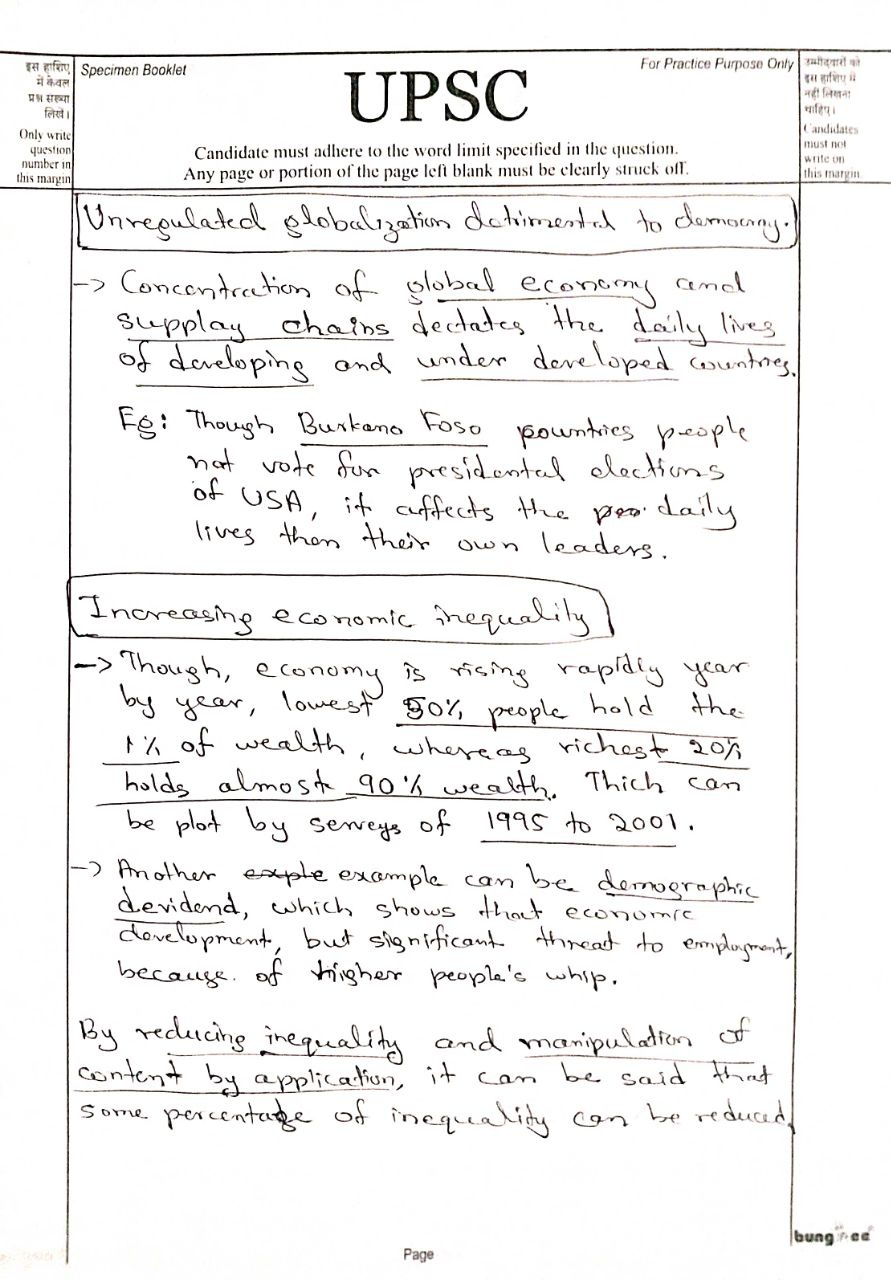 इस हाशिए
में केवल
प्रश्न संख्या
लिखें।
Only write
question
number in
this margin
Specimen Booklet
For Practice Purpose Only
UPSC
Candidate must adhere to the word limit specified in the question.
Any page or portion of the page left blank must be clearly struck off.
उम्मीदवारों को
इस हाशिए में
नहीं लिखना
चाहिए।
Candidates
must not
write on
this margin
Unregulated globalization detrimental to democracy.
-> Concentraction of global economy and
supplay chains dectates the daily lives
of developing and under developed countries.
Eg: Though Burkano Foso pountries people
not vote for presidental elections
of USA, it affects the daily
lives then their own leaders.
Increasing economic inequality
-> Though, economy is rising rapidly year
by year, lowest 50% people hold the
1% of wealth, whereas richest 20%
holds almost 90% wealth. Thich can
be plot by serveys of 1995 to 2001.
-> Another exple example can be demographic
devidend, which shows that economic
development, but significant threat to employment,
because of higher people's whip.
By reducing inequality and manipulation of
content by application, it can be said that
some percentage of inequality can be reduced.
Page